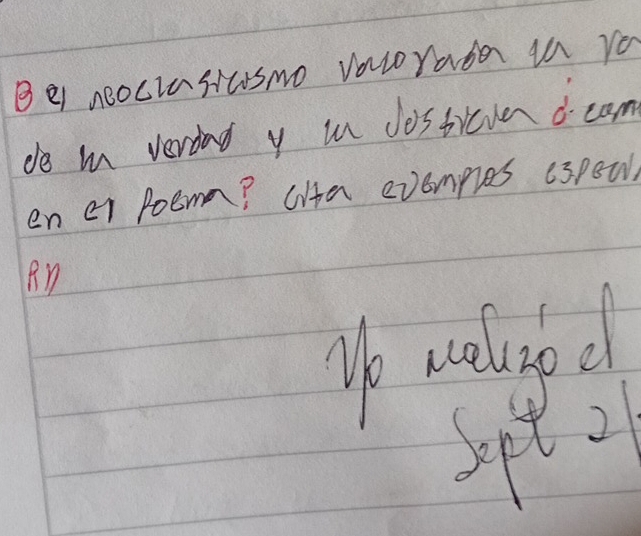 B el neoclasicismo valoraba la ra
de la verdad y la Jostician ¿ cam
en el Poema? cita evemplos especi
R//
Yo realizó el
Sept 21